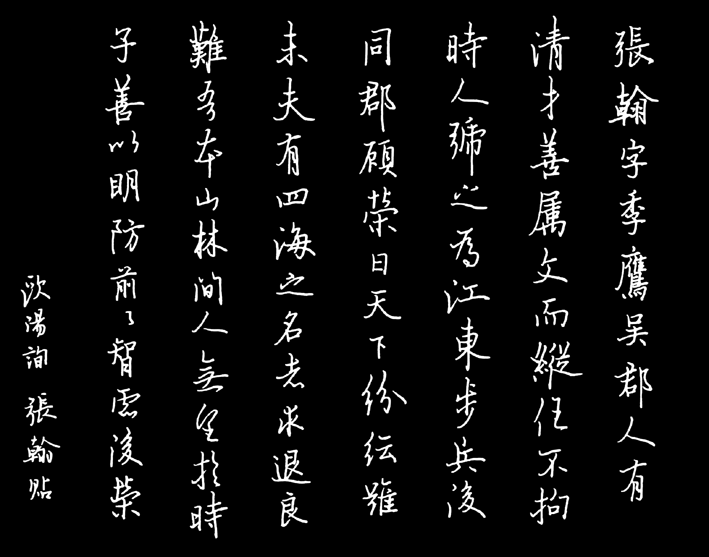 張翰字季鷹吳郡人有
清才善属文而縱任不拘
時人號之為江東步兵後
同郡顧榮曰天下紛紜難
未夫有四海之名者求退良
難吾本山林間人無望於時
子善以明防前々智慮後榮
欧陽詢 張翰貼